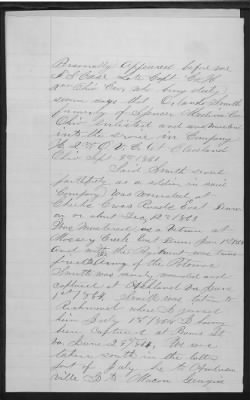 Personally Appeared before me
J S Case Late Capt. Co H
2nd Ohio Cav, who being duly
sworn says that Orlando Smith
formerly of Spencer Medina Co
Ohio Enlisted and was mustered
into the service in Company
H 2nd O. V. C. at Cleveland
Ohio Sept. 1861
Said Smith served
faithfully as a soldier in said
Company was wounded at
Creek Cross Roads East Tenn
on or about Dec, 1863
Was Mustered as a Veteran at
Mossy Creek East Tenn Jan 1st 1864
And with the Regiment was
Smith was wounded and
captured at Ashland Va June
1st 1864, Smith was taken to
Richmond where I joined
him July 1864 I having
been Captured at
Va. June 29 1864, We were
taken south in the latter
part of July he to Anderson
ville & I to Macon Georgia